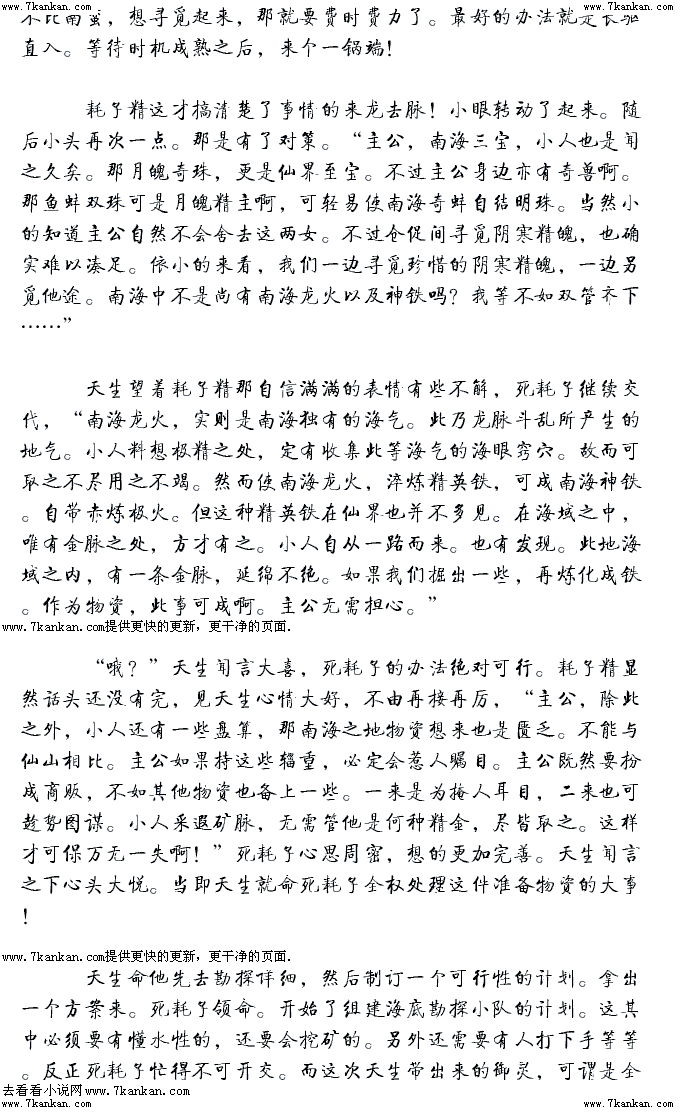 www.7kankan.com www.7kankan.com
不比南蛮，想寻觅起来，那就要费时费力了。最好的办法就是长驱
直入。等待时机成熟之后，来个一锅端！
耗子精这才搞清楚了事情的来龙去脉！小眼转动了起来。随
后小头再次一点。那是有了对策。“主公，南海三宝，小人也是闻
之久矣。那月魄奇珠，更是仙界至宝。不过主公身边亦有奇兽啊。
那鱼蚌双珠可是月魄精主啊，可轻易使南海奇蚌自结明珠。当然小
的知道主公自然不会舍去这两女。不过仓促间寻觅阴寒精魄，也确
实难以凑足。依小的来看，我们一边寻觅珍惜的阴寒精魄，一边另
觅他途。南海中不是尚有南海龙火以及神铁吗？我等不如双管齐下
……”
天生望着耗子精那自信满满的表情有些不解，死耗子继续交
代，“南海龙火，实则是南海独有的海气。此乃龙脉斗乱所产生的
地气。小人料想极精之处，定有收集此等海气的海眼窍穴。故而可
取之不尽用之不竭。然而使南海龙火，淬炼精英铁，可成南海神铁
。自带赤炼极火。但这种精英铁在仙界也并不多见。在海域之中，
唯有金脉之处，方才有之。小人自从一路而来。也有发现。此地海
域之内，有一条金脉，延绵不绝。如果我们掘出一些，再炼化成铁
。作为物资，此事可成啊。主公无需担心。”
www.7kankan.com提供更快的更新，更干净的页面.
“哦？”天生闻言大喜，死耗子的办法绝对可行。耗子精显
然话头还没有完，见天生心情大好，不由再接再厉，“主公，除此
之外，小人还有一些盘算，那南海之地物资想来也是匮乏。不能与
仙山相比。主公如果持这些辎重，必定会惹人瞩目。主公既然要扮
成商贩，不如其他物资也备上一些。一来是为掩人耳目，二来也可
趁势图谋。小人采遐矿脉，无需管他是何种精金，尽皆取之。这样
才可保万无一失啊！”死耗子心思周密，想的更加完善。天生闻言
之下心头大悦。当即天生就命死耗子全权处理这件准备物资的大事
！
www.7kankan.com提供更快的更新，更干净的页面.
天生命他先去勘探详细，然后制订一个可行性的计划。拿出
一个方案来。死耗子领命。开始了组建海底勘探小队的计划。这其
中必须要有懂水性的，还要会挖矿的。另外还需要有人打下手等等
。反正死耗子忙得不可开交。而这次天生带出来的御灵，可谓是全
去看看小说网www.7kankan.com
www.7kankan.com www.7kankan.com